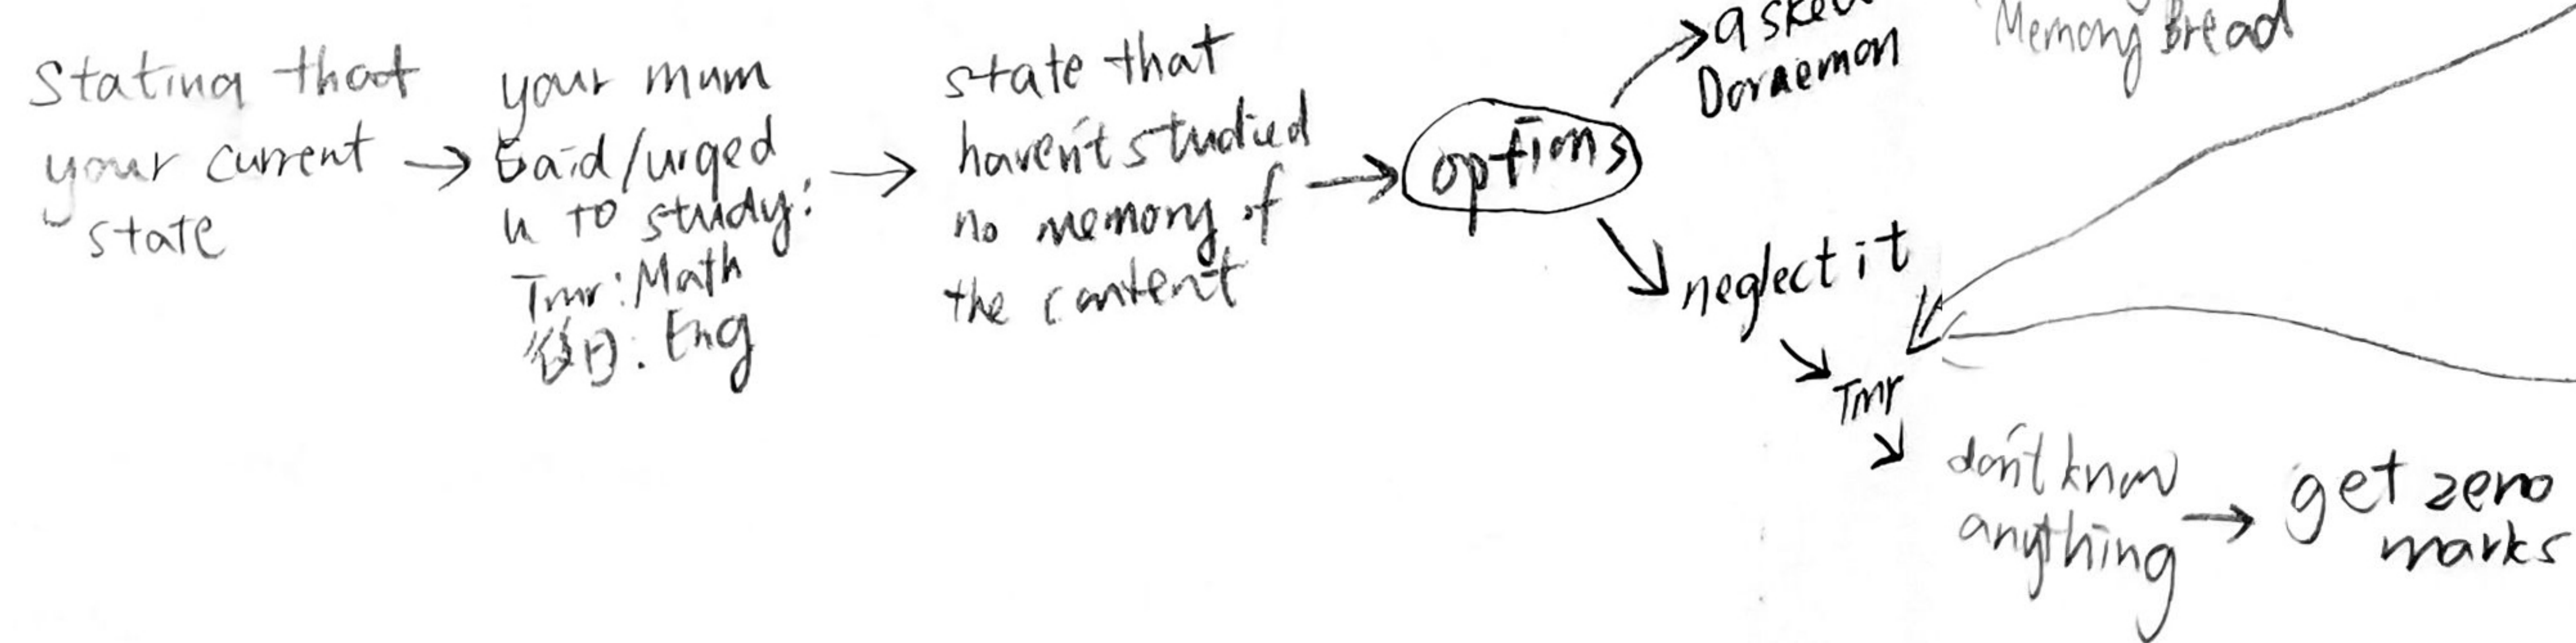 Stating that
your current
state
your mum
said/urged
u to study:
Tmr: Math
後日: Eng
state that
haven't studied
no memory of
the content
options
asked
Doraemon
Memory Bread
neglect it
Tmr
don't know
anything
get zero
marks